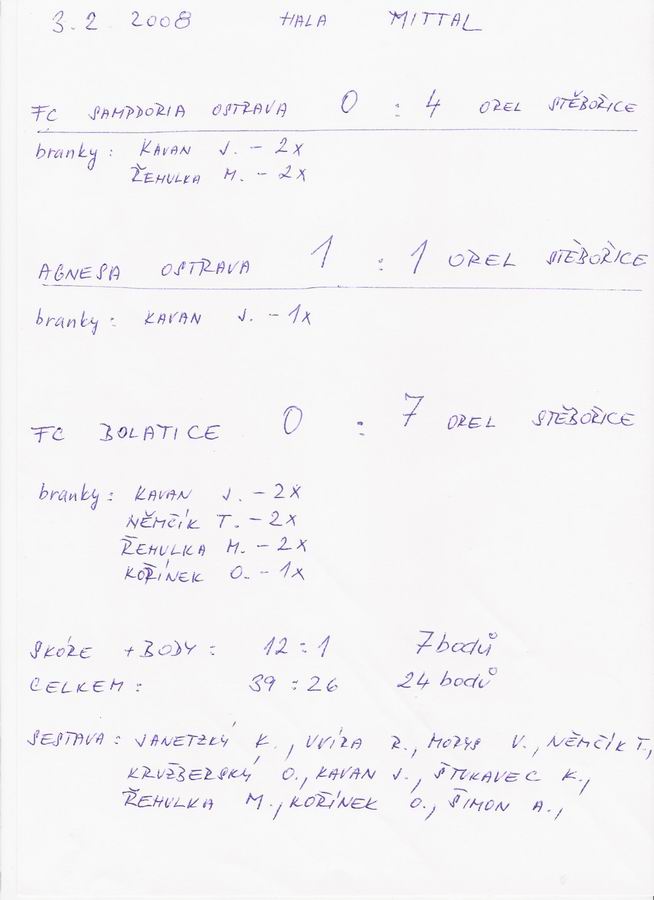 3.2. 2008 HALA MITTAL
FC SAMPDORIA OSTRAVA 0 : 4 OREL STĚBOŘICE
branky: KAVAN J. - 2x
ŘEHULKA M. - 2x
AGNESA OSTRAVA 1 : 1 OREL STĚBOŘICE
branky: KAVAN J. - 1x
FC BOLATICE 0 : 7 OREL STĚBOŘICE
branky: KAVAN J. - 2x
NĚMČÍK T. - 2x
ŘEHULKA M. - 2x
KOŘÍNEK O. - 1x
SKÓRE + BODY: 12 : 1 7 bodů
CELKEM: 39 : 26 24 bodů
SESTAVA: JANETZKÝ K., UVÍRA R., MORYS V., NĚMČÍK T.,
KRUŽBERSKÝ O., KAVAN J., ŠTUKAVEC K.,
ŘEHULKA M., KOŘÍNEK O., ŠIMON A.,